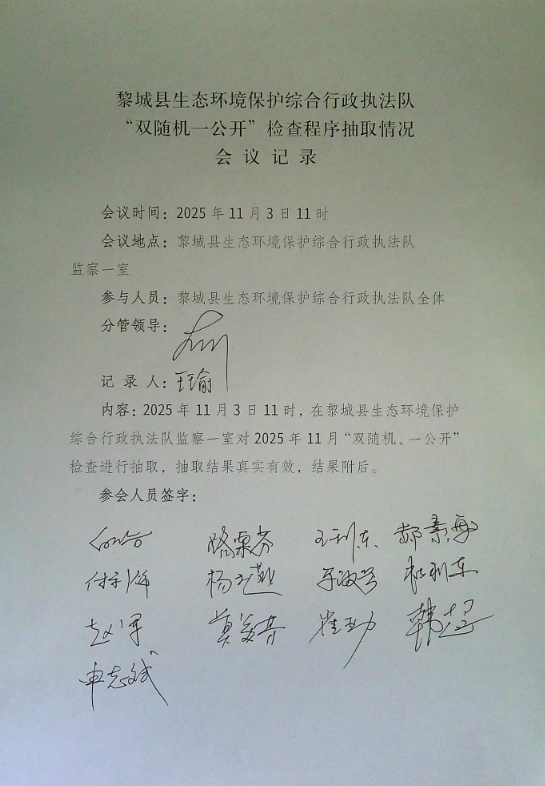 黎城县生态环境保护综合行政执法队
“双随机一公开”检查程序抽取情况
会议记录
会议时间：2025年11月3日11时
会议地点：黎城县生态环境保护综合行政执法队
监察一室
参与人员：黎城县生态环境保护综合行政执法队全体
分管领导：
记录人：王瑜
内容：2025年11月3日11时，在黎城县生态环境保护
综合行政执法队监察一室对2025年11月“双随机、一公开”
检查进行抽取，抽取结果真实有效，结果附后。
参会人员签字：
王利东 郝素梅
杨利东
赵军 崔劲 韩超
申志斌